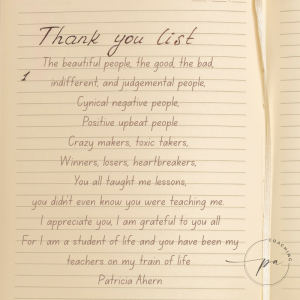 Thank you list
The beautiful people, the good, the bad,
1
indifferent, and judgemental people,
Cynical negative people,
Positive upbeat people
Crazy makers, toxic takers,
Winners, losers, heartbreakers,
You all taught me lessons,
you didn't even know you were teaching me.
I appreciate you, I am grateful to you all
For I am a student of life and you have been my
teachers on my train of life
Patricia Ahern
COACHING
pa